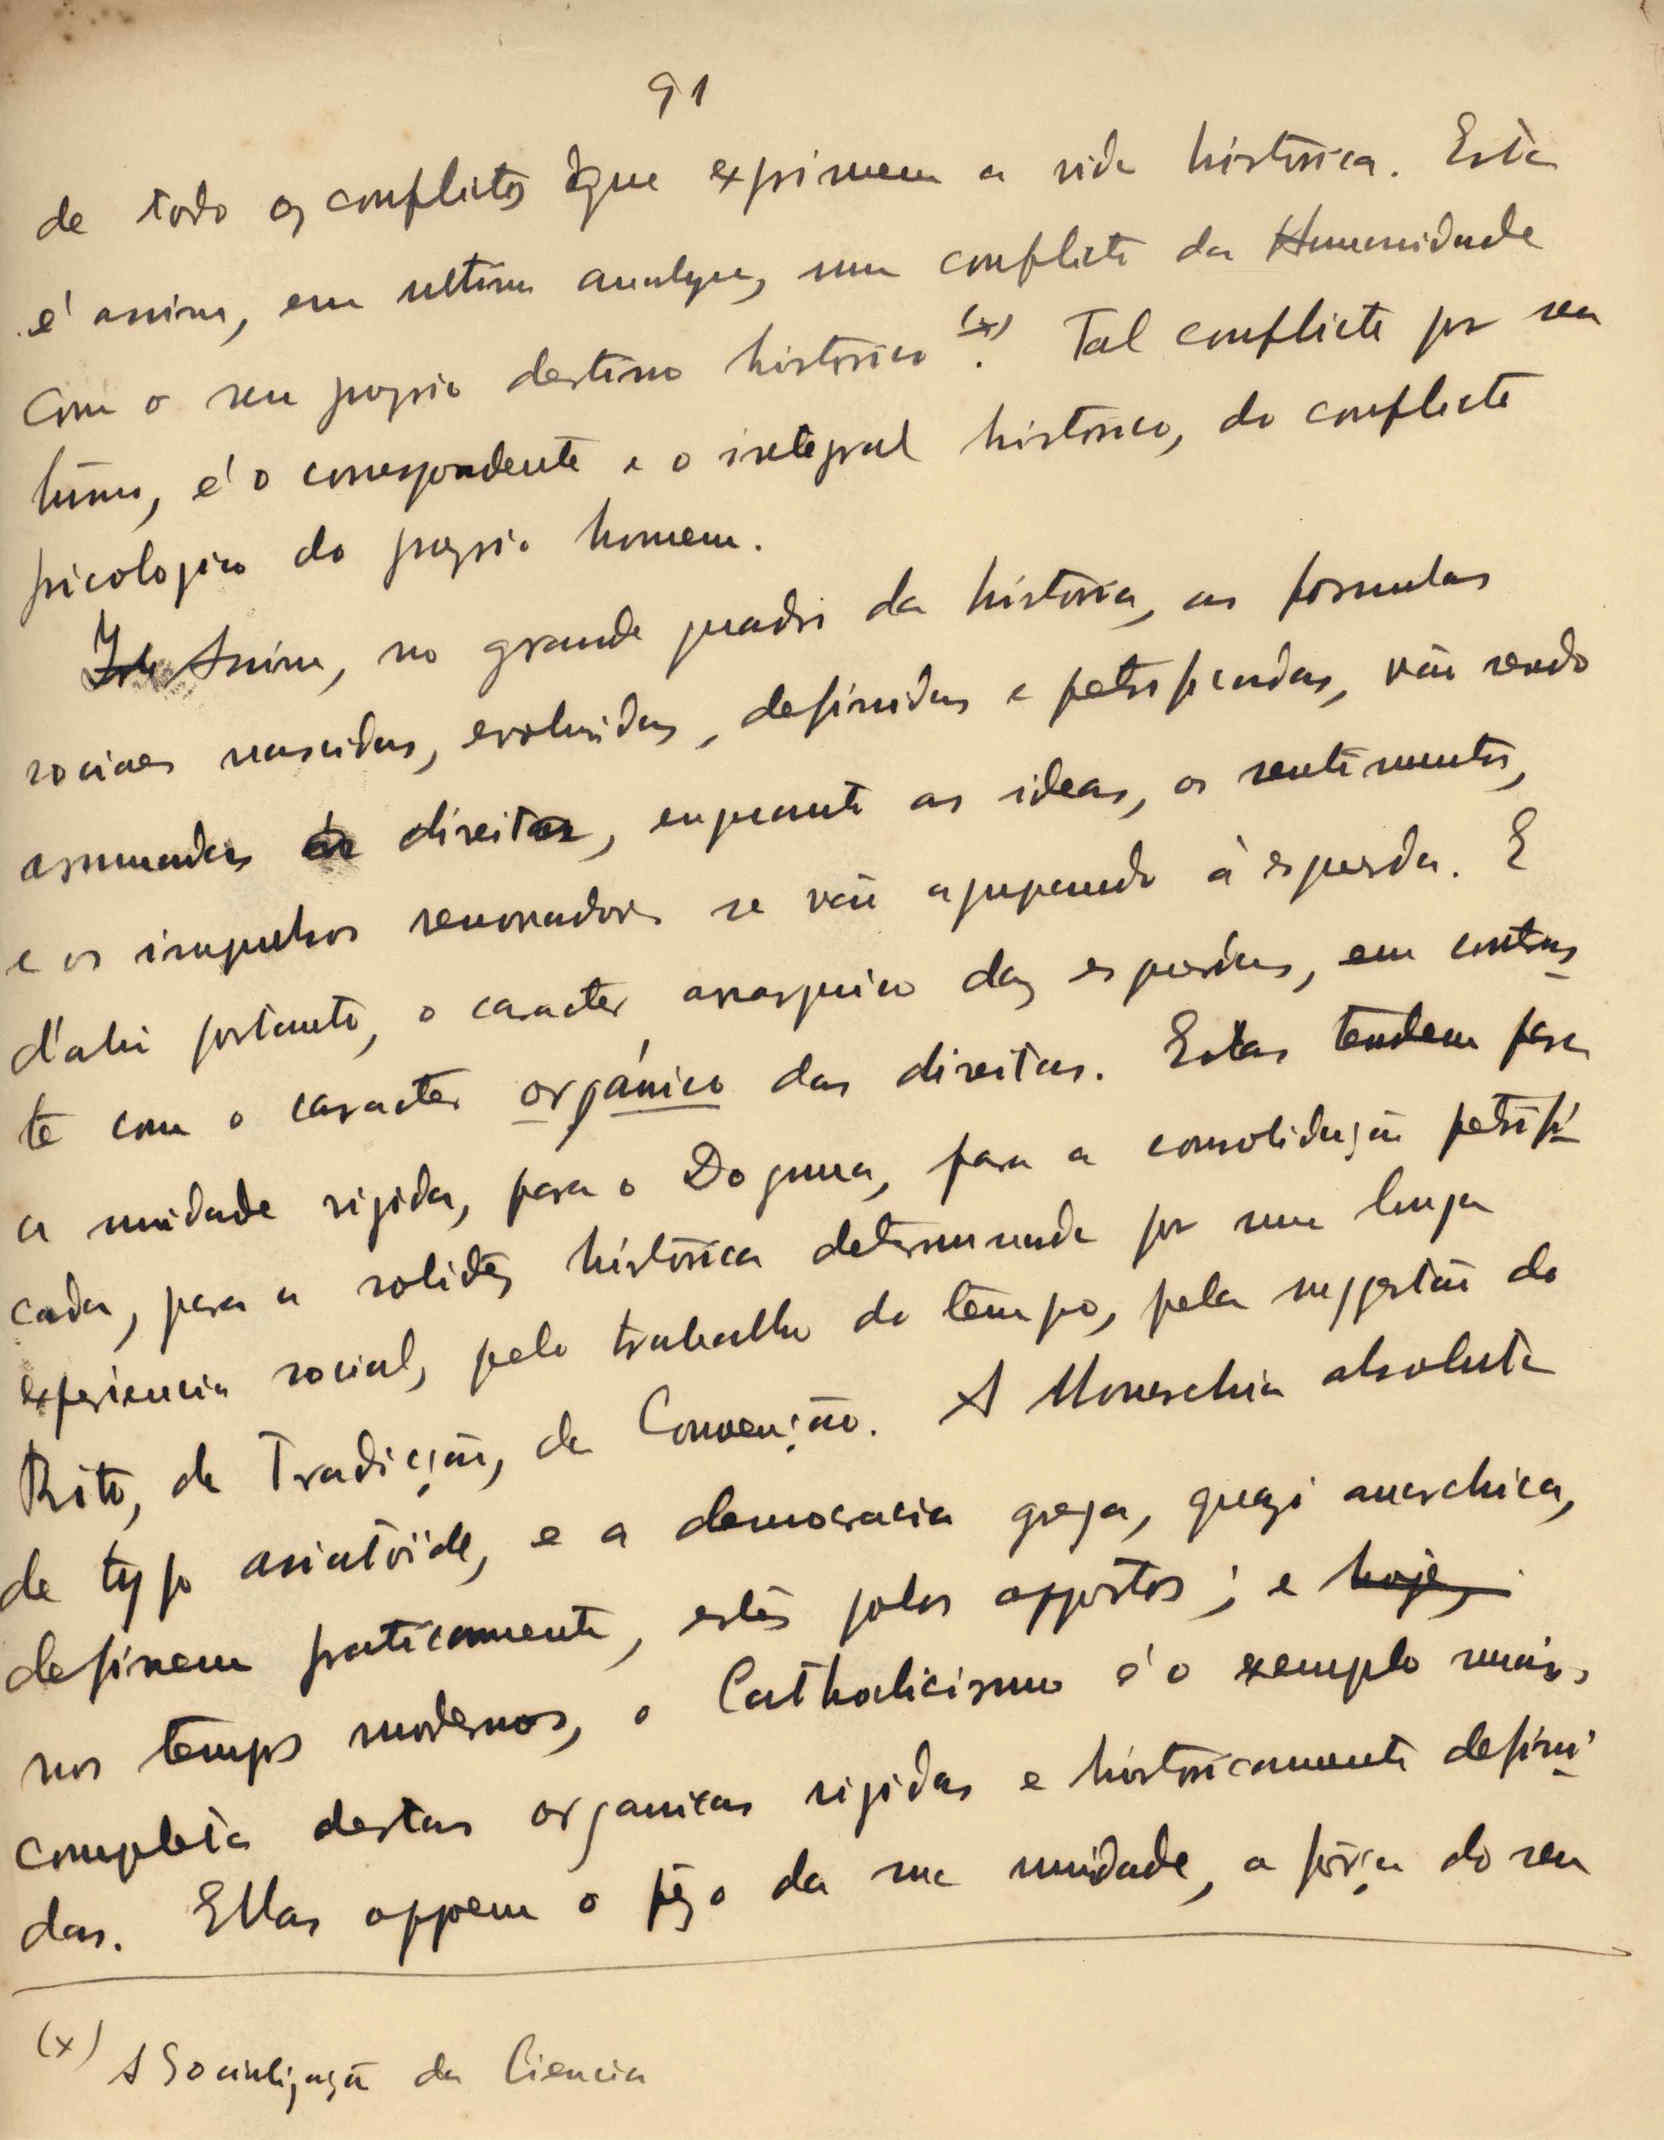 91
de todo os conflictos que exprimem a vida histórica. Esta
é assim, em ultima analyse, um conflicto da Humanidade
com o seu proprio destino histórico (x). Tal conflicto por seu
turno, é o correspondente e o integral histórico, do conflicto
psicologico do proprio homem.
Assim, no grande quadro da história, as fórmulas
sociaes nascidas, evoluidas, definidas e petrificadas, vão sendo
arrumadas direitas, enquanto as ideas, os sentimentos,
e os impulsos renovadores se vão agrupando à esquerda. E
d'ahi portanto, o caracter anarquico das esquerdas, em contras-
te com o caracter orgánico das direitas. Estas tendem para
a unidade rigida, para o Dogma, para a consolidação petrifi-
cada, para a solidez histórica determinada por uma longa
experiencia social, pelo trabalho do tempo, pela suggestão do
Rito, da Tradicção, da Convenção. A Monarchia absoluta
de typo asiatóide, e a democracia grega, quazi anarchica,
definem praticamente, estes polos oppostos; e hoje,
nos tempos modernos, o Catholicismo é o exemplo mais
completo destas organicas rigidas e históricamente defini-
das. Ellas oppoem o pêzo da sua unidade, a fôrça do seu
(x) A Socializaçã da Ciencia